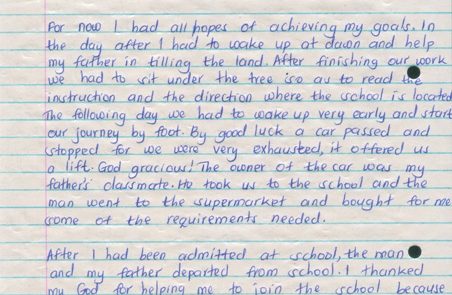 For now I had all hopes of achieving my goals. In
the day after I had to wake up at dawn and help
my father in tilling the land. After finishing our work
we had to sit under the tree so as to read the
instruction and the direction where the school is located
The following day we had to wake up very early and start
our journey by foot. By good luck a car passed and
stopped for we were very exhausted, it offered us
a lift. God gracious! The owner of the car was my
father's classmate. He took us to the school and the
man went to the supermarket and bought for me
some of the requirements needed.
After I had been admitted at school, the man
and my father departed from school. I thanked
my God for helping me to join the school because